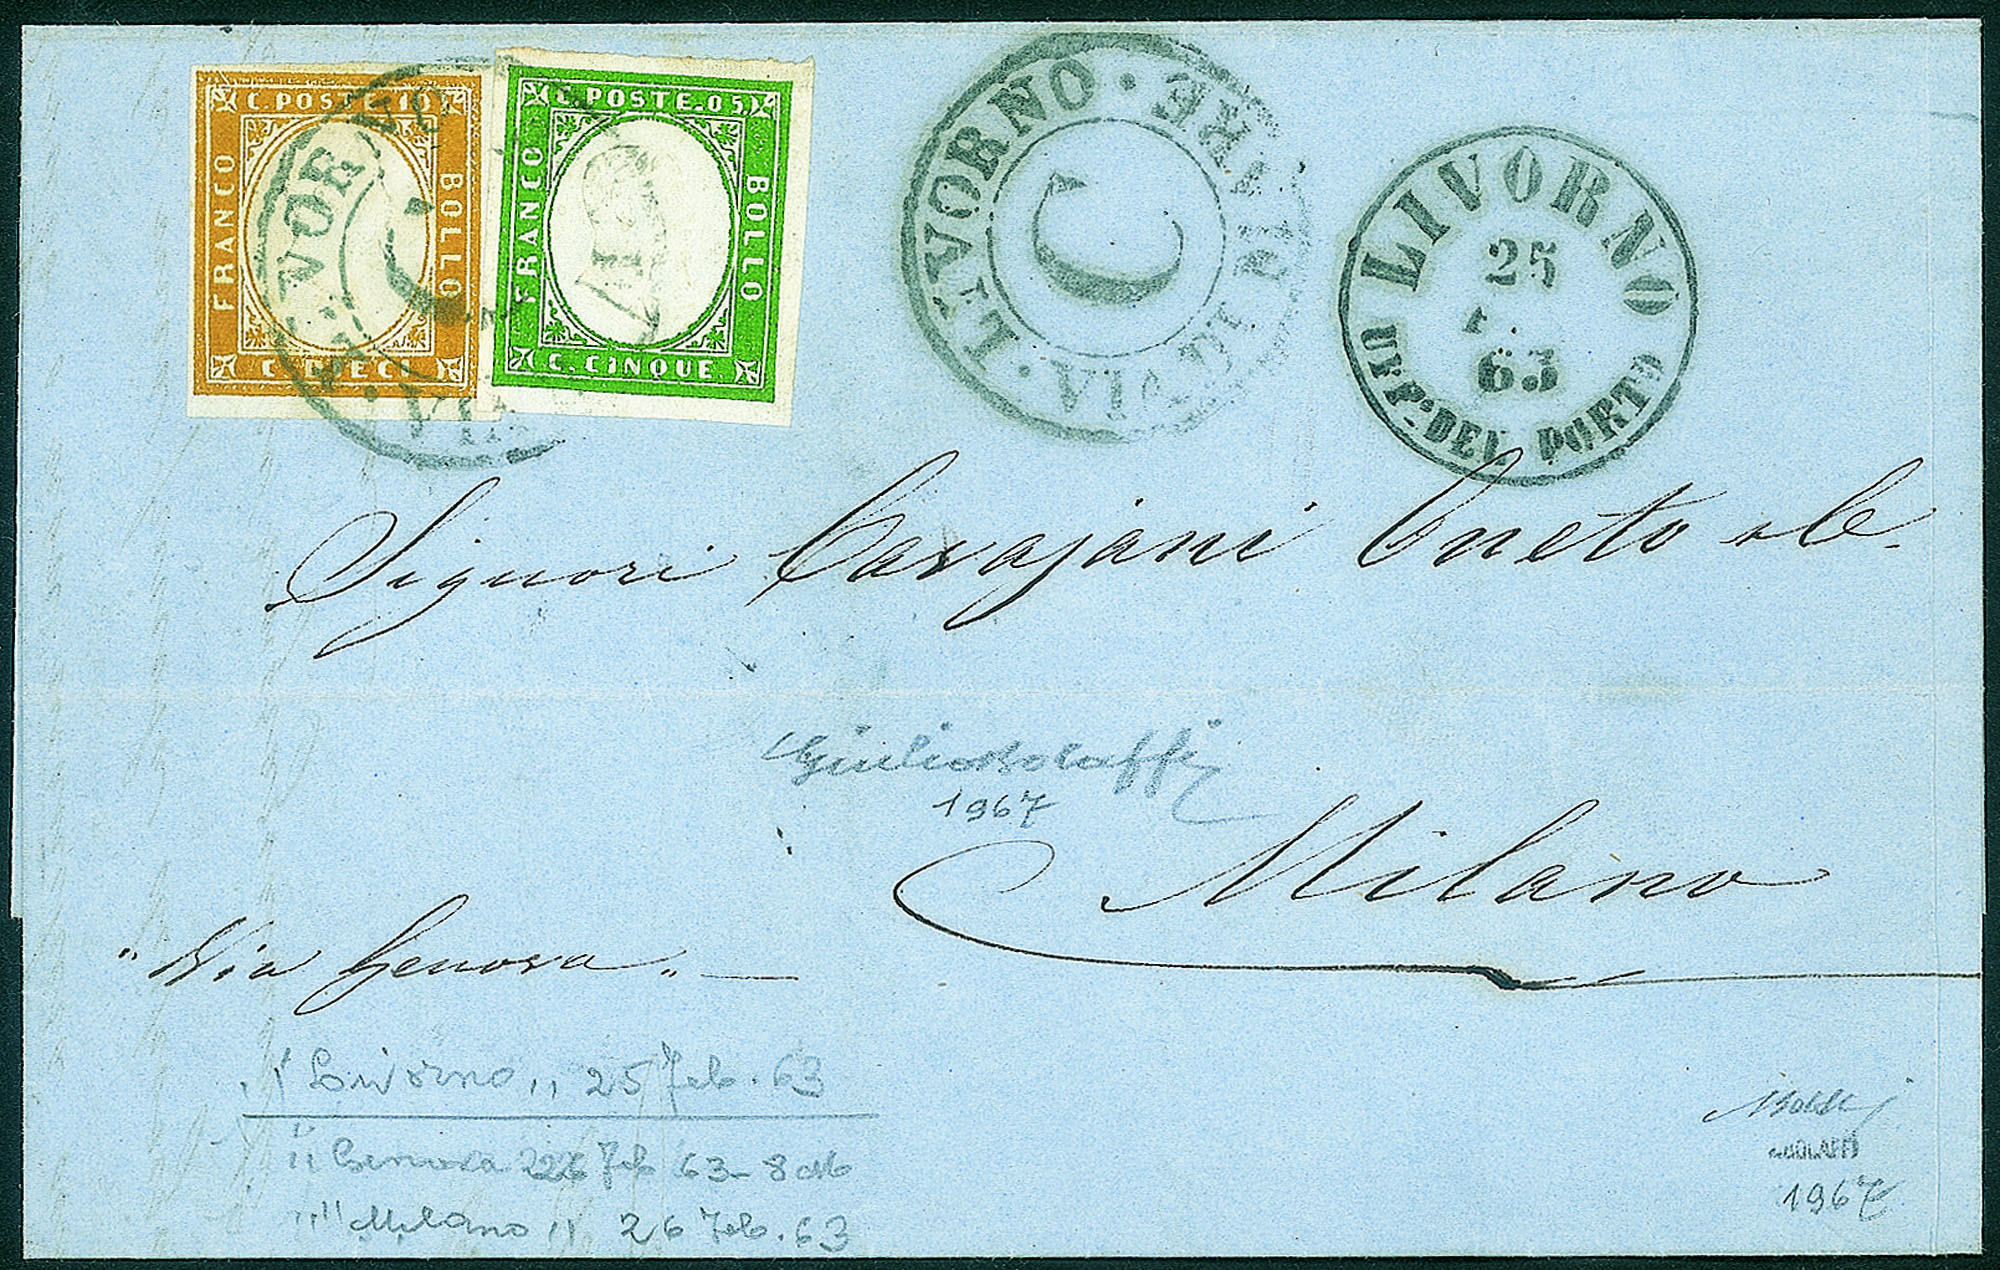 C. POSTE. 10
FRANCO
BOLLO
C. DIECI
C. POSTE. 05
FRANCO
BOLLO
C. CINQUE
LIVORNO
VIA DI MARE
C
LIVORNO
25
63
DEL PORTO
Signori Carajani Oneto &C.
Milano
"Via Genova"
Giulio Bolaffi
1967
"Livorno" 25 Feb. 63
"Genova 26 Feb 63 - 8
"Milano" 26 Feb. 63
1967